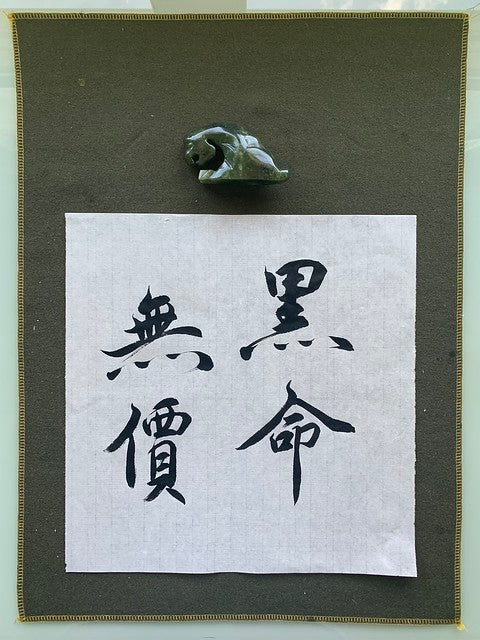 黑命
無價